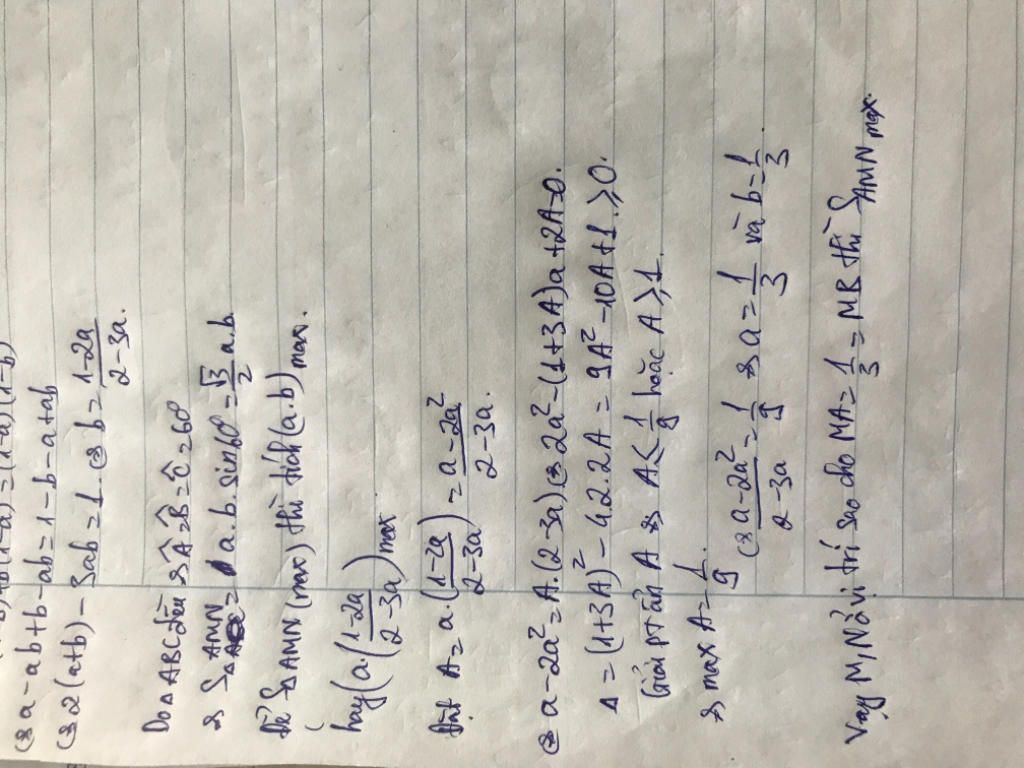 ⇔ a - ab + b - ab = 1 - b - a + ab
⇔ 2(a+b) - 3ab = 1. ⇔ b = \frac{1-2a}{2-3a}.
Do △ABC đều ⇒ Â = B̂ = Ĉ = 60°
⇒ S△AMN = a.b.sin60° = \frac{√3}{2} a.b.
Để S△AMN (max) thì tích (a.b) max.
hay (a.\frac{1-2a}{2-3a}) max
Đặt A = a.(\frac{1-2a}{2-3a}) = \frac{a-2a²}{2-3a}.
⇔ a - 2a² = A.(2-3a) ⇔ 2a² - (1+3A)a + 2A = 0.
Δ = (1+3A)² - 4.2.2A = 9A² - 10A + 1. ≥ 0.
Giải PT ẩn A ⇒ A < \frac{1}{9} hoặc A ≥ 1.
⇒ max A = \frac{1}{9}.
⇔ \frac{a-2a²}{2-3a} = \frac{1}{9} ⇒ a = \frac{1}{3} và b = \frac{1}{3}.
Vậy M, N ở vị trí sao cho MA = \frac{1}{3} = MB thì S AMN max.